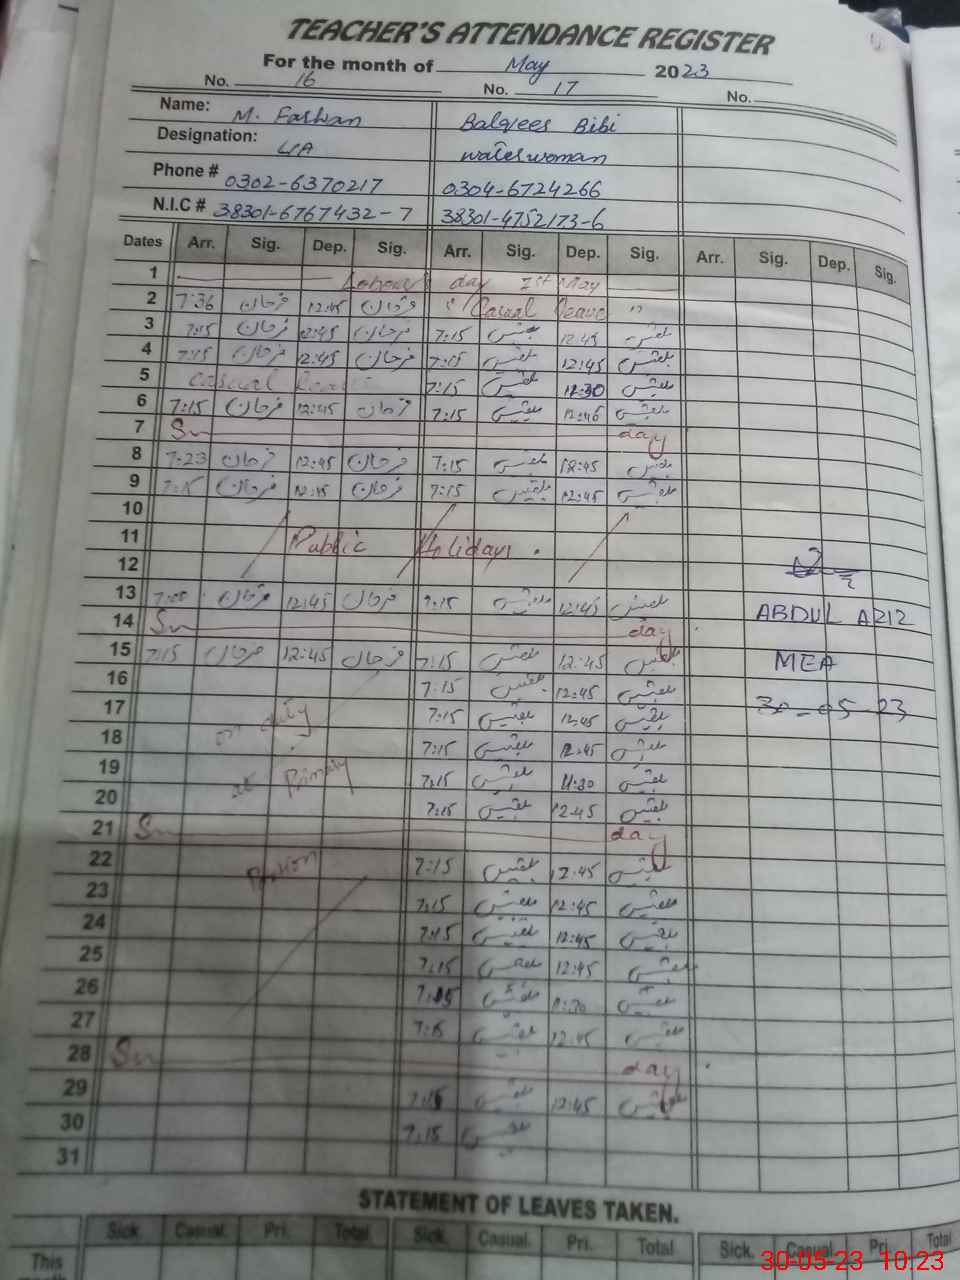 TEACHER'S ATTENDANCE REGISTER
For the month of May 2023
No. 16 No. 17 No.
Name: M. Farhan Balqees Bibi
Designation: waterwoman
Phone # 0302-6370217 0304-6724266
N.I.C # 38301-6767432-7 38301-4752173-6
Dates Arr. Sig. Dep. Sig. Arr. Sig. Dep. Sig. Arr. Sig. Dep. Sig.
1 Labour's day 1st May
2 7:36 فرحان 12:45 فرحان " Casual leave "
3 7:15 فرحان 12:45 فرحان 7:15 بلقیس 12:45 بلقیس
4 7:15 فرحان 12:45 فرحان 7:15 بلقیس 12:45 بلقیس
5 Casual leave 7:15 بلقیس 12:30 بلقیس
6 7:15 فرحان 12:45 فرحان 7:15 بلقیس 12:46 بلقیس
7 Sunday
8 7:23 فرحان 12:45 فرحان 7:15 بلقیس 12:45 بلقیس
9 7:15 فرحان 12:45 فرحان 7:15 بلقیس 12:45 بلقیس
10
11 Public Holidays.
12
13 فرحان 12:45 فرحان 7:15 بلقیس 12:45 بلقیس
ABDUL AZIZ
14 Sunday
15 7:15 فرحان 12:45 فرحان 7:15 بلقیس 12:45 بلقیس
MEA
16 7:15 بلقیس 12:45 بلقیس
17 on duty 7:15 بلقیس 12:45 بلقیس
30-05-23
18 7:15 بلقیس 12:45 بلقیس
19 at Primary 7:15 بلقیس 11:30 بلقیس
20 7:15 بلقیس 12:45 بلقیس
21 Sunday
22 Portion 7:15 بلقیس 12:45 بلقیس
23 7:15 بلقیس 12:45 بلقیس
24 7:15 بلقیس 12:45 بلقیس
25 7:15 بلقیس 12:45 بلقیس
26 7:15 بلقیس بلقیس
27 7:15 بلقیس 12:45 بلقیس
28 Sunday
29 7:15 بلقیس 12:45 بلقیس
30 7:15 بلقیس
31
STATEMENT OF LEAVES TAKEN.
Sick. Casual. Pri. Total Sick. Casual. Pri. Total Sick. Casual. Pri. Total
This
month
30-05-23 10:23